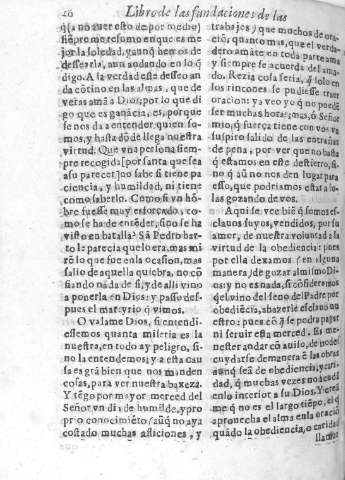 26
Libro de las fundaciones de las
q̃(a no auer esto de por medio)
siẽpre me resumo en que es me
jor la soledad, y aunq̃ hemos de
dessearla, aun andando en lo q̃
digo. A la verdad este desseo an
da cõtino en las almas, que de
veras amã a Dios; por lo que di
go que es ganãcia, es, porque
se nos da a entender quien so-
mos, y hasta dõde llega nuestra
virtud. Que vna persona siem-
pre recogida (por santa que sea
a su parecer) no sabe si tiene pa
ciencia, y humildad, ni tiene
como saberlo. Como si vn hõ-
bre fuesse muy esforçado, co-
mo se ha de entẽder, si no se ha
visto en batalla? Sã Pedro har-
to le parecia que lo era, mas mi
rẽ lo que fue en la ocasion, mas
salio de aquella quiebra, no cõ
fiando nada de si, y de alli vino
a ponerla en Dios: y passo des-
pues el martyrio q̃ vimos.
O valame Dios, si entendi-
essemos quanta miseria es la
nuestra, en todo ay peligro, si-
no la entendemos; y a esta cau
sa es grã bien que nos manden
cosas, para ver nuestra baxeza.
Y tẽgo por mayor merced del
Señor vn dia de humilde, y pro
prio conocimiẽto (aũq̃ no aya
costado muchas afliciones, y
trabajos) que muchos de ora-
ciõ; quanto mas, que el verda-
dero amãte en toda parte ama
y siempre se acuerda del ama-
do. Rezia cosa seria, q̃ solo en
los rincones se pudiesse traer
oracion: ya veo yo q̃ no puedẽ
ser muchas horas; mas, ô Señor
mio, q̃ fuerça tiene con vos vn
suspiro salido de las entrañas
de pena, por ver que no basta
q̃ estamos en este destierro, si-
no q̃ aũ no nos den lugar para
esso, que podriamos estar a so-
las gozando de vos.
Aqui se vee biẽ q̃ somos es-
clauos suyos, vendidos, por su
amor, de nuestra voluntad a la
virtud de la obediencia: pues
por ella dexamos (en alguna
manera) de gozar al mismo Dio-
s; y no es nada, si cõsideramos
q̃ el vino del seno del Padre por
obediẽcia, a hazerse esclauo nu
estro: pues cõ q̃ se podra pagar
ni seruir esta merced. Es me-
nester andar cõ auiso, de no des
cuydarse de manera ẽ las obras
aunq̃ seã de obediencia, y cari-
dad, q̃ muchas vezes no acudã
en lo interior a su Dios. Y creã
me q̃ no es el largo tiẽpo, el q̃
aprouecha el alma en la oraciõ
quãdo la obediencia, o caridad